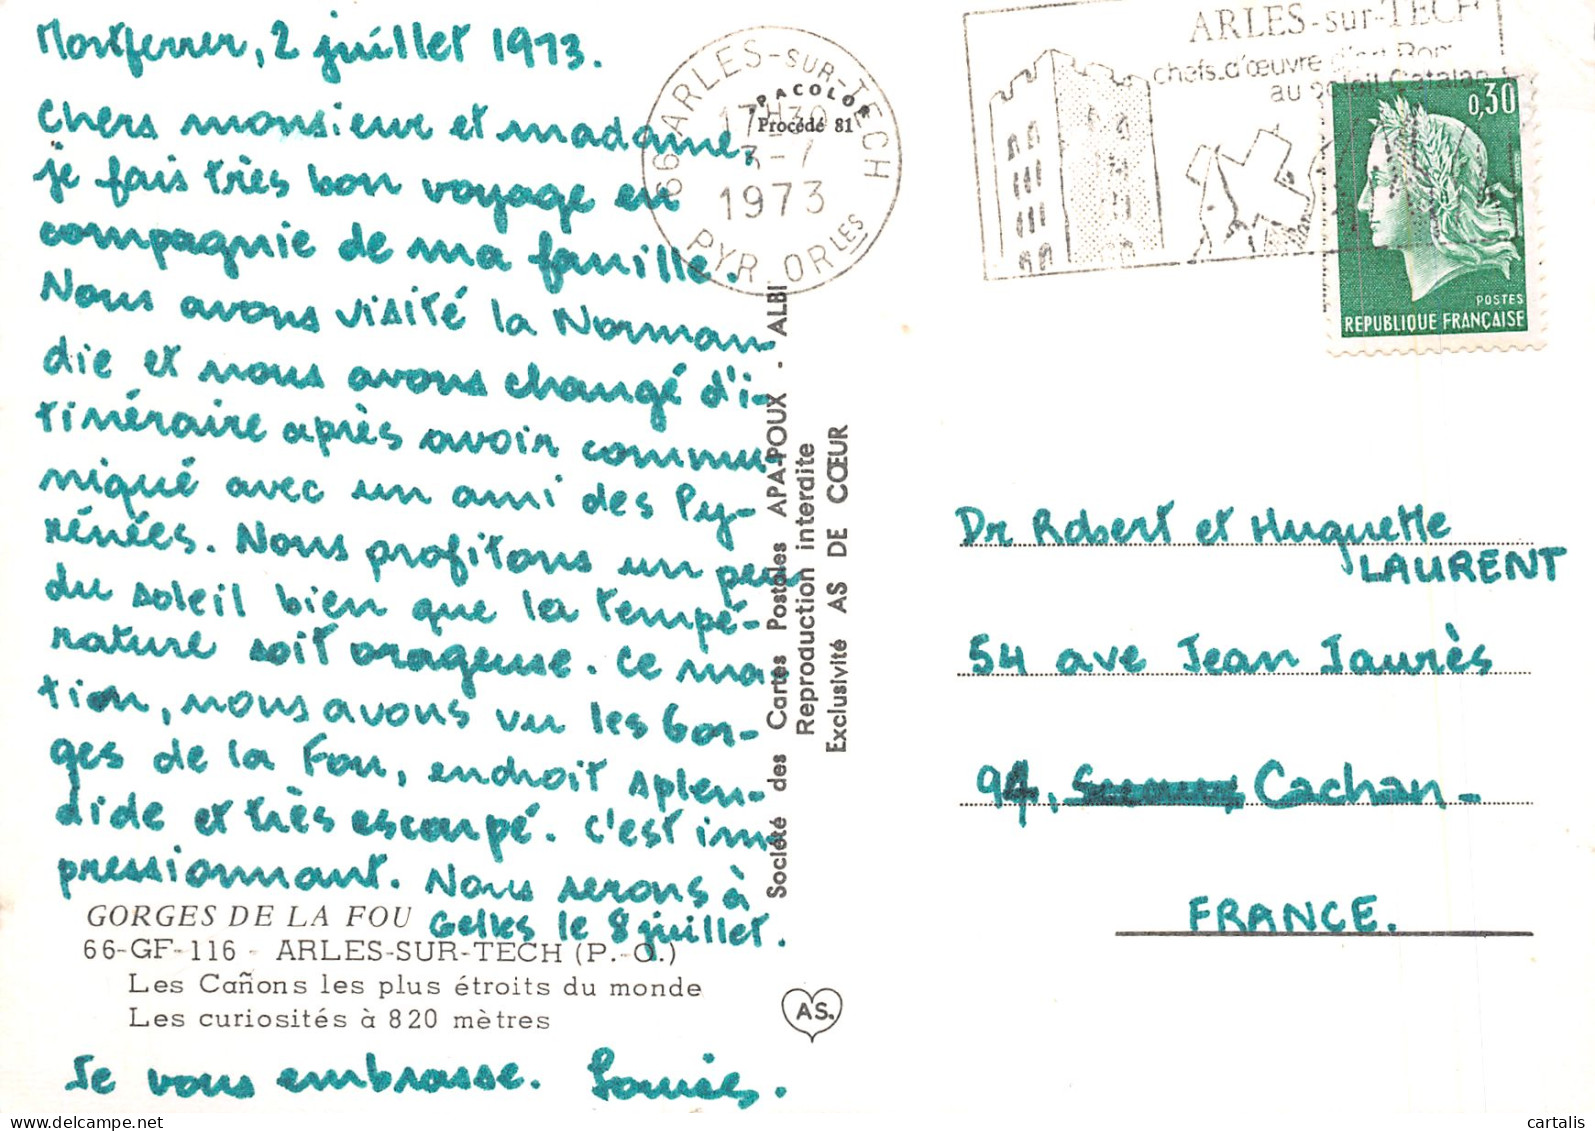 Montferrer, 2 juillet 1973.
Chers monsieur et madame,
je fais très bon voyage en
compagnie de ma famille.
Nous avons visité la Norman
die et nous avons changé d'i-
tinéraire après avoir commu
niqué avec un ami des Py-
rénées. Nous profitons un peu
du soleil bien que la tempé-
rature soit orageuse. Ce ma-
tion, nous avons vu les Gor-
ges de la Fou, endroit splen-
dide et très escarpé. C'est im
pressionnant. Nous serons à
Gelles le 8 juillet.
GORGES DE LA FOU
66-GF-116 - ARLES-SUR-TECH (P.-O.)
Les Cañons les plus étroits du monde
Les curiosités à 820 mètres
Je vous embrasse.
66 ARLES-SUR-TECH
17H30
3-7
1973
PYR. ORLES
APACOLOR
Procédé 81
Société des Cartes Postales APA-POUX - ALBI
Reproduction interdite
Exclusivité AS DE CŒUR
AS.
ARLES-sur-TECH
chefs d'œuvre d'art Rom
au soleil Catalan
0,30
POSTES
REPUBLIQUE FRANÇAISE
Dr Robert et Huguette
LAURENT
54 ave Jean Jaurès
94, Cachan-
FRANCE.
delcampe.net
artcarte